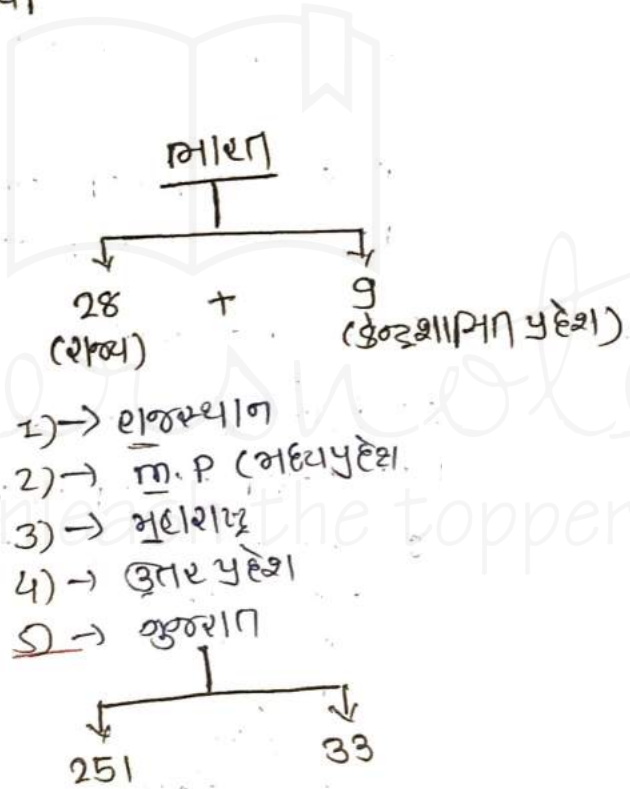 ભારત
28 + 9
(રાજ્ય) (કેન્દ્રશાસિત પ્રદેશ)
1)→ રાજસ્થાન
2)→ M.P (મધ્યપ્રદેશ
3)→ મહારાષ્ટ્ર
4)→ ઉત્તર પ્રદેશ
5)→ ગુજરાત
251 33